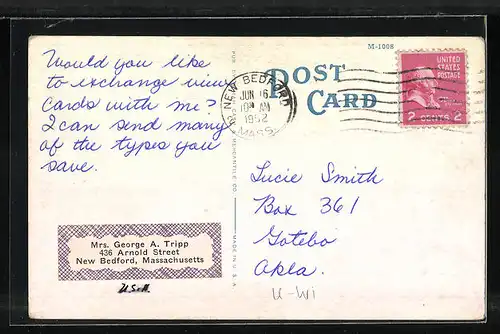 M-1008
Would you like
to exchange view
cards with me?
I can send many
of the types you
save.
Mrs. George A. Tripp
436 Arnold Street
New Bedford, Massachusetts
U.S.A.
MADE IN U.S.A.
NEW BEDFORD
JUN 16
AM
1952
MASS.
POST
CARD
UNITED
STATES
POSTAGE
2 CENTS 2
Lucie Smith
Box 361
Gotebo
Okla.
U-Wi